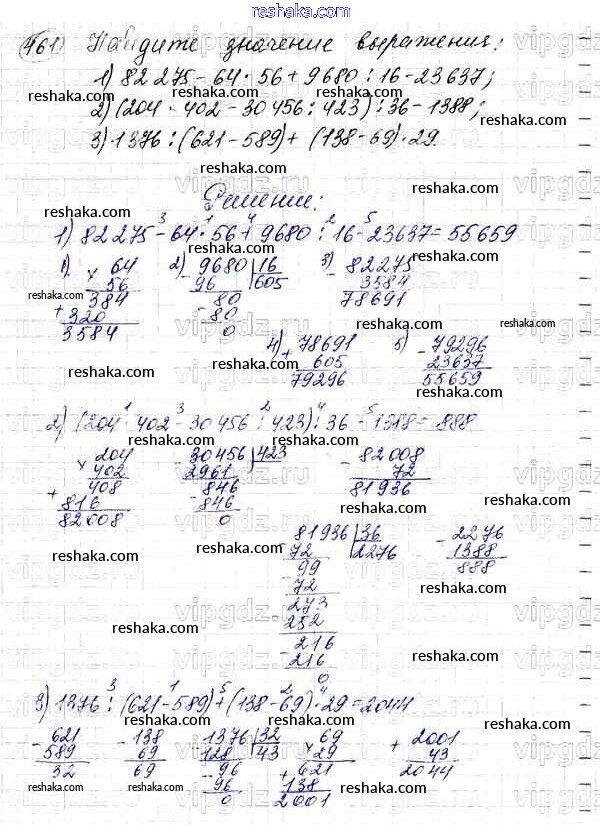 reshaka.com
461) Найдите значение выражения:
1) 82 275 - 64 · 56 + 9680 : 16 - 23637;
2) (204 · 402 - 30456 : 423) : 36 - 1388;
3) 1376 : (621 - 589) + (138 - 69) · 29.
Решение:
1) 82 275 - 64 · 56 + 9680 : 16 - 23637 = 55659
3 1 4 2 5
1) × 64
56
384
+ 320
3584
2) - 9680 | 16
96 605
80
- 80
0
3) - 82275
3584
78691
4) + 78691
605
79296
5) - 79296
23637
55659
2) (204 · 402 - 30456 : 423) : 36 - 1388 = 888
1 3 2 4 5
× 204
402
408
+ 816
82008
- 30456 | 423
2961
846
- 846
0
- 82008
72
81936
- 81936 | 36
72 2276
- 99
72
- 273
252
- 216
216
0
- 2276
1388
888
3) 1376 : (621 - 589) + (138 - 69) · 29 = 2044
3 1 5 2 4
- 621
589
32
- 138
69
69
- 1376 | 32
128 43
- 96
96
0
× 69
29
+ 621
138
2001
+ 2001
43
2044
reshaka.com
vipgdz.ru